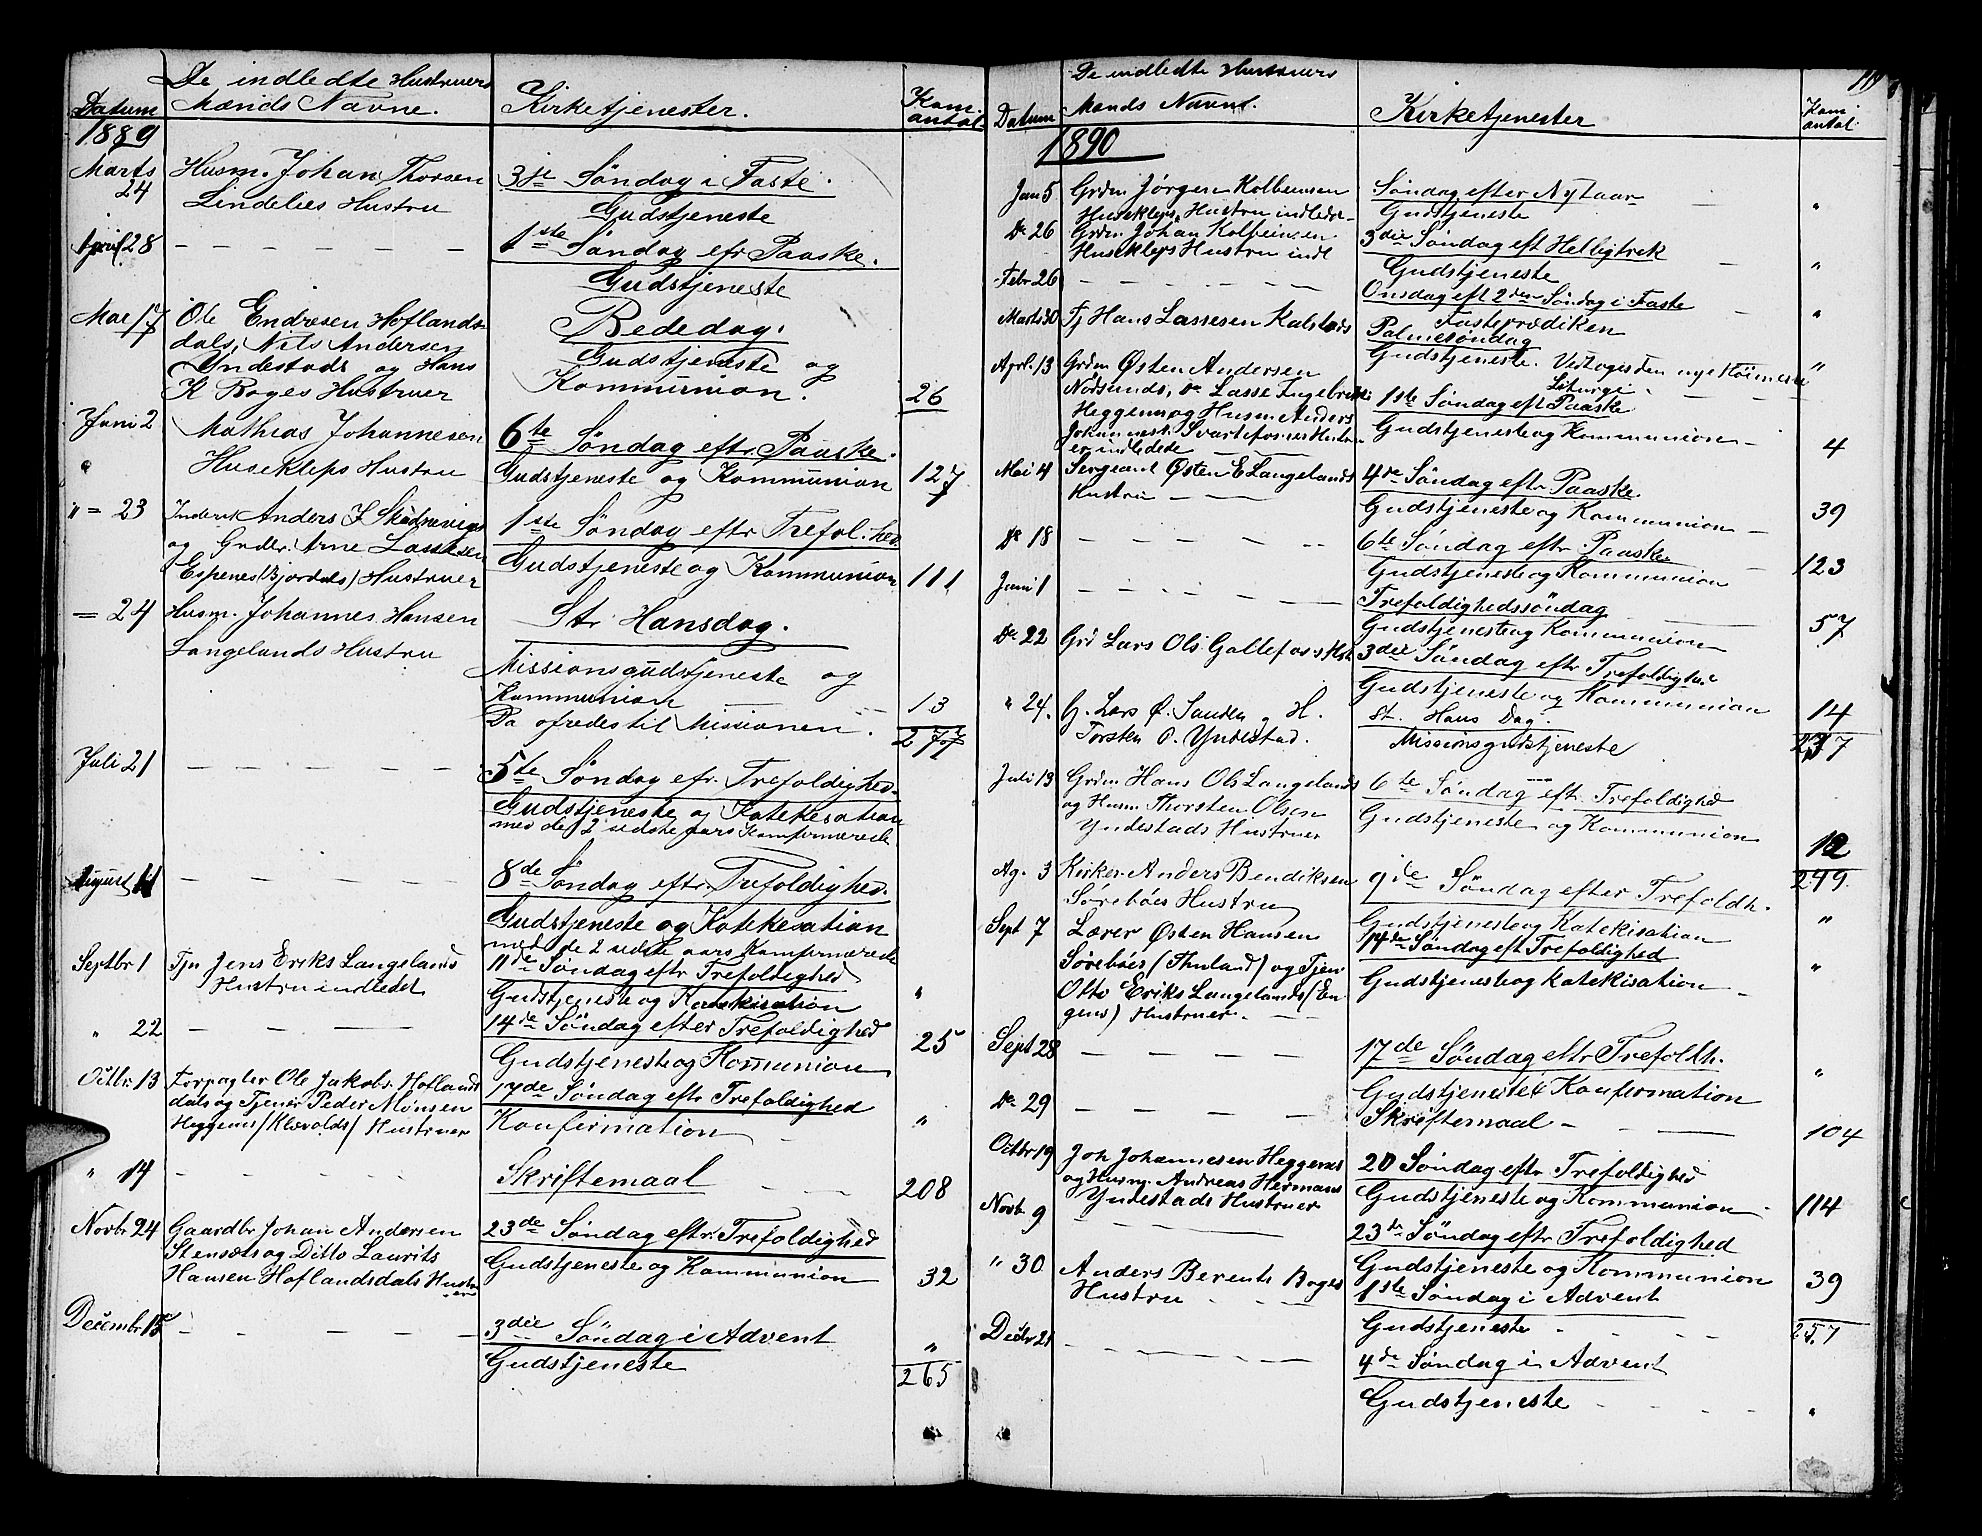 De indledte Hustruers
Datum Mænds Navne. Kirketjenester. Kom. antal
1889
Marts 24 Husm. Johan Thorsen 3die Søndag i Faste.
Lindelies Hustru Gudstjeneste
April 28 1ste Søndag eftr Paaske.
Gudstjeneste
Mai 17 Ole Endresen Hoflands-
dals, Nils Andersen Bededag.
Yndestads og Hans Gudstjeneste og
K Boges Hustruer Kommunion. 26
Juni 2 Mathias Johannesen 6te Søndag eftr Paaske.
Husekleps Hustru Gudstjeneste og Kommunion 127
" = 23 Anders 1ste Søndag eftr Trefol.hed
og Grdbr. Arne Lassesen Gudstjeneste og Kommunion 111
Espenes (Bjordals) Hustruer
= 24 Husm. Johannes Hansen St. Hansdag.
Langelands Hustru Missionsgudstjeneste og
Kommunion 13
Da ofredes til Missionen. 277
Juli 21 5te Søndag efr. Trefoldighed.
Gudstjeneste og Katekesation
med de 2 sidste aars Konfirmerede
August 11 8de Søndag eftr. Trefoldighed.
Gudstjeneste og Katekesation
med de 2 sidste aars Konfirmerede
Septbr 1 Tjn Jens Eriks Langelands 11de Søndag eftr Trefoldighed
Hustru indledet Gudstjeneste og Katekisation "
" 22 14de Søndag efter Trefoldighed 25
Gudstjeneste og Kommunion
Octbr. 13 Forpagter Ole Jakobs. Hoflands 17de Søndag eftr Trefoldighed
dals og Tjener Peder Monsen Konfirmation "
Heggenes (Klævolds) Hustruer
" 14 Skriftemaal 208
Novbr 24 Gaardbr Johan Andersen 23de Søndag eftr. Trefoldighed
Stensæts og Ditto Laurits Gudstjeneste og Kommunion 32
Hansen Hoflandsdals Hustruer
Decembr 15 3die Søndag i Advent "
Gudstjeneste 265
119
De indledte Hustruers
Datum Mænds Navne. Kirketjenester Kom antal
1890
Jan 5 Grdm Jørgen Kolbeinsen Søndag efter Nytaar
Husekleps Hustru indledt Gudstjeneste "
Do 26 Grdm Johan Kolbeinsen 3die Søndag eft Helligtrek
Husekleps Hustru indl Gudstjeneste "
Febr 26 Onsdag eft 2den Søndag i Faste
Fasteprædiken "
Marts 30 Tj Hans Lassesen Kalstads Palmesøndag
Gudstjeneste. Vedtoges den nye Høimesse "
Liturgi
Aprl. 13 Grdm Østen Andersen 1ste Søndag eft Paaske
Nødsunds, Do Lasse Ingebrikts Gudstjeneste og Kommunion 4
Heggenes og Husm Anders
Johannes. Svartefosnes Hustru-
er indledede
Mai 4 Sergeant Østen E Langelands 4de Søndag eftr Paaske
Hustru Gudstjeneste og Kommunion 39
Do 18 6te Søndag eftr Paaske
Gudstjeneste og Kommunion 123
Juni 1 Trefoldighedssøndag
Gudstjeneste og Kommunion 57
Do 22 Grd Lars Ols. Gallefos's Hst 3die Søndag eftr Trefoldighed
Gudstjeneste og Kommunion 14
" 24. G. Lars Ø. Sandes og H. St. Hans Dag.
Torsten O. Yndestad. Missionsgudstjeneste 237
Juli 13 Grdm Hans Ols Langelands 6te Søndag eft. Trefoldighed
og Husm Thorsten Olsen Gudstjeneste og Kommunion
Yndestads Hustruer 12
Ag. 3 Kirkes. Anders Bendiksen 9de Søndag efter Trefoldh. 249
Sørebøes Hustru Gudstjeneste og Katekisation "
Sept 7 Lærer Østen Hansen 14de Søndag eft Trefoldighed
Sørebøes (Thuland) og Tjen Gudstjeneste og Katekisation "
Otto Eriks Langelands (En-
genes) Hustruer.
Sept 28 17de Søndag eftr Trefoldh.
Gudstjeneste & Konfirmation "
Do 29 Skriftemaal 104
Octbr 19 Joh Johannesen Heggenes 20 Søndag eftr Trefoldighed
og Husm. Andreas Hermans Gudstjeneste og Kommunion 114
Yndestads Hustruer
Novb. 9 23de Søndag eftr Trefoldighed
Gudstjeneste og Kommunion 39
" 30 Anders Berents Boges 1ste Søndag i Advent
Hustru Gudstjeneste 257
Decbr 21 4de Søndag i Advent
Gudstjeneste "